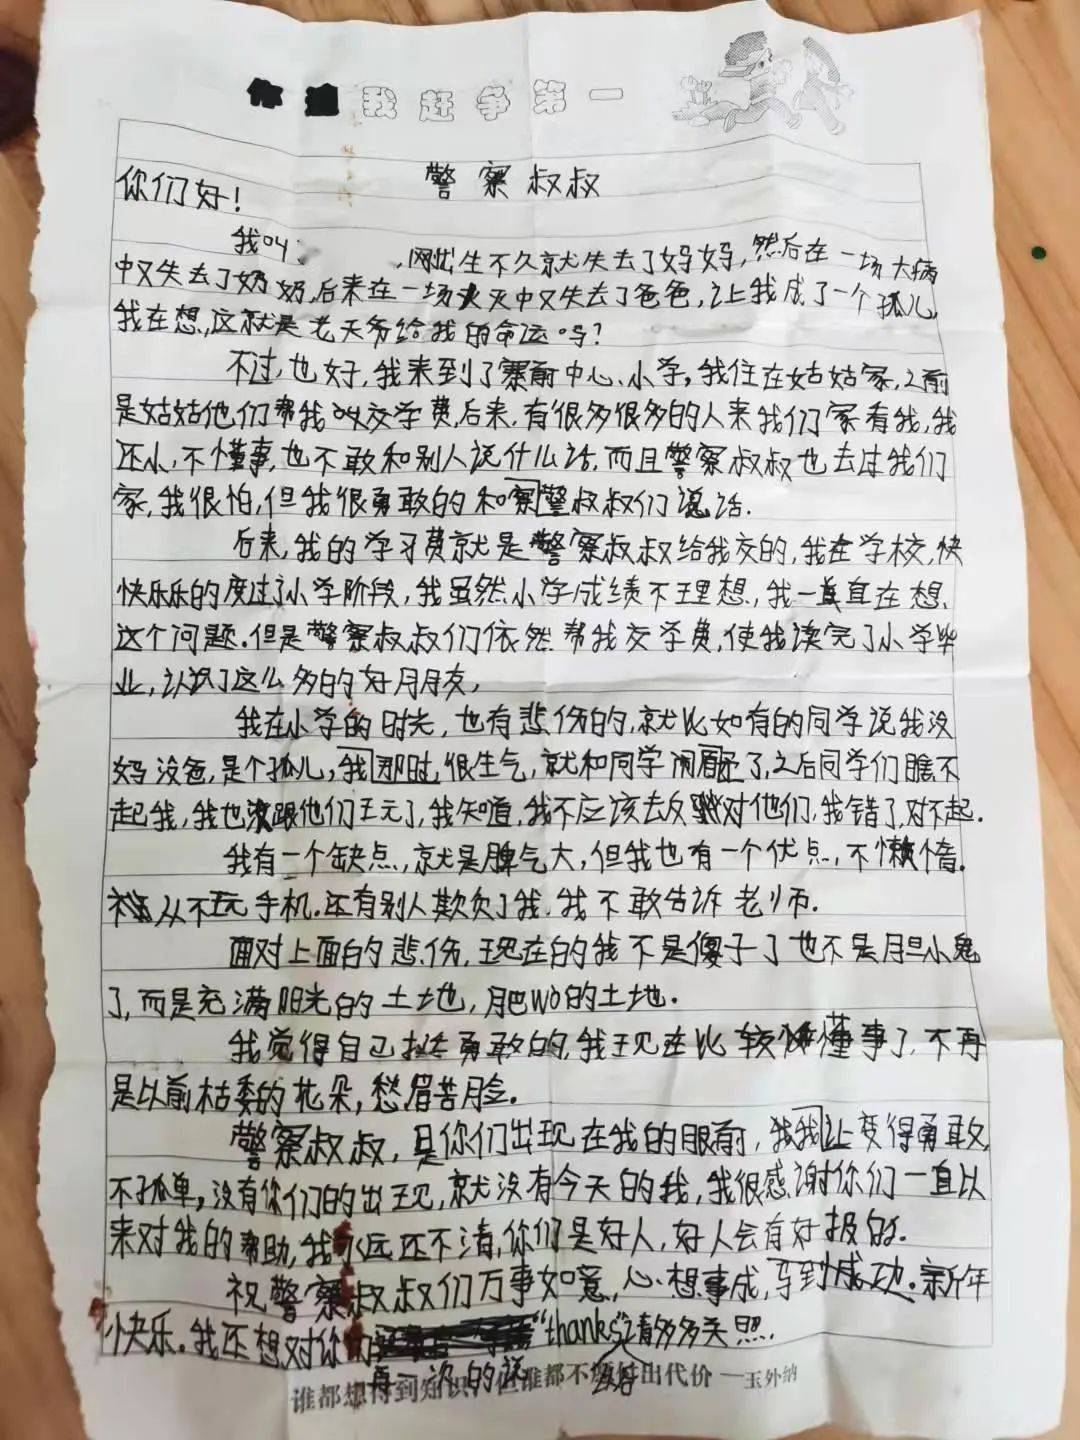 你追我赶争第一
警察叔叔
你们好!
我叫 ,刚出生不久就失去了妈妈,然后在一场大病
中又失去了奶奶,后来在一场火灾中又失去了爸爸,让我成了一个孤儿,
我在想,这就是老天爷给我的命运吗?
不过,也好,我来到了寨前中心小学,我住在姑姑家,之前
是姑姑他们帮我叫交学费,后来,有很多很多的人来我们家看我,我
还小,不懂事,也不敢和别人说什么话,而且警察叔叔也去过我们
家,我很怕,但我很勇敢的和察警叔叔们说话.
后来,我的学习费就是警察叔叔给我交的,我在学校,快
快乐乐的度过了小学阶段,我虽然小学成绩不理想,我一直在想,
这个问题.但是警察叔叔们依然帮我交学费,使我读完了小学毕
业,认识了这么多的好朋友,
我在小学的时光,也有悲伤的,就比如有的同学说我没
妈没爸,是个孤儿,我那时很生气,就和同学闹了,之后同学们瞧不
起我,我也没跟他们玩了,我知道,我不应该去反对他们,我错了,对不起.
我有一个缺点,就是脾气大,但我也有一个优点,不懒惰.
从不玩手机.还有别人欺负了我,我不敢告诉老师.
面对上面的悲伤,现在的我不是傻子了也不是胆小鬼
了,而是充满阳光的土地,肥wò的土地.
我觉得自己挺勇敢的,我现在比较懂事了,不再
是以前枯萎的花朵,愁眉苦脸。
警察叔叔,是你们出现在我的眼前,我让变得勇敢,
不孤单,没有你们的出现,就没有今天的我,我很感谢你们一直以
来对我的帮助,我永远还不清,你们是好人,好人会有好报的.
祝警察叔叔们万事如意,心想事成,马到成功.新年
快乐.我还想对你们"thanks"请多多关照.
再一次的
谁都想得到知识,但谁都不愿付出代价 —玉外纳